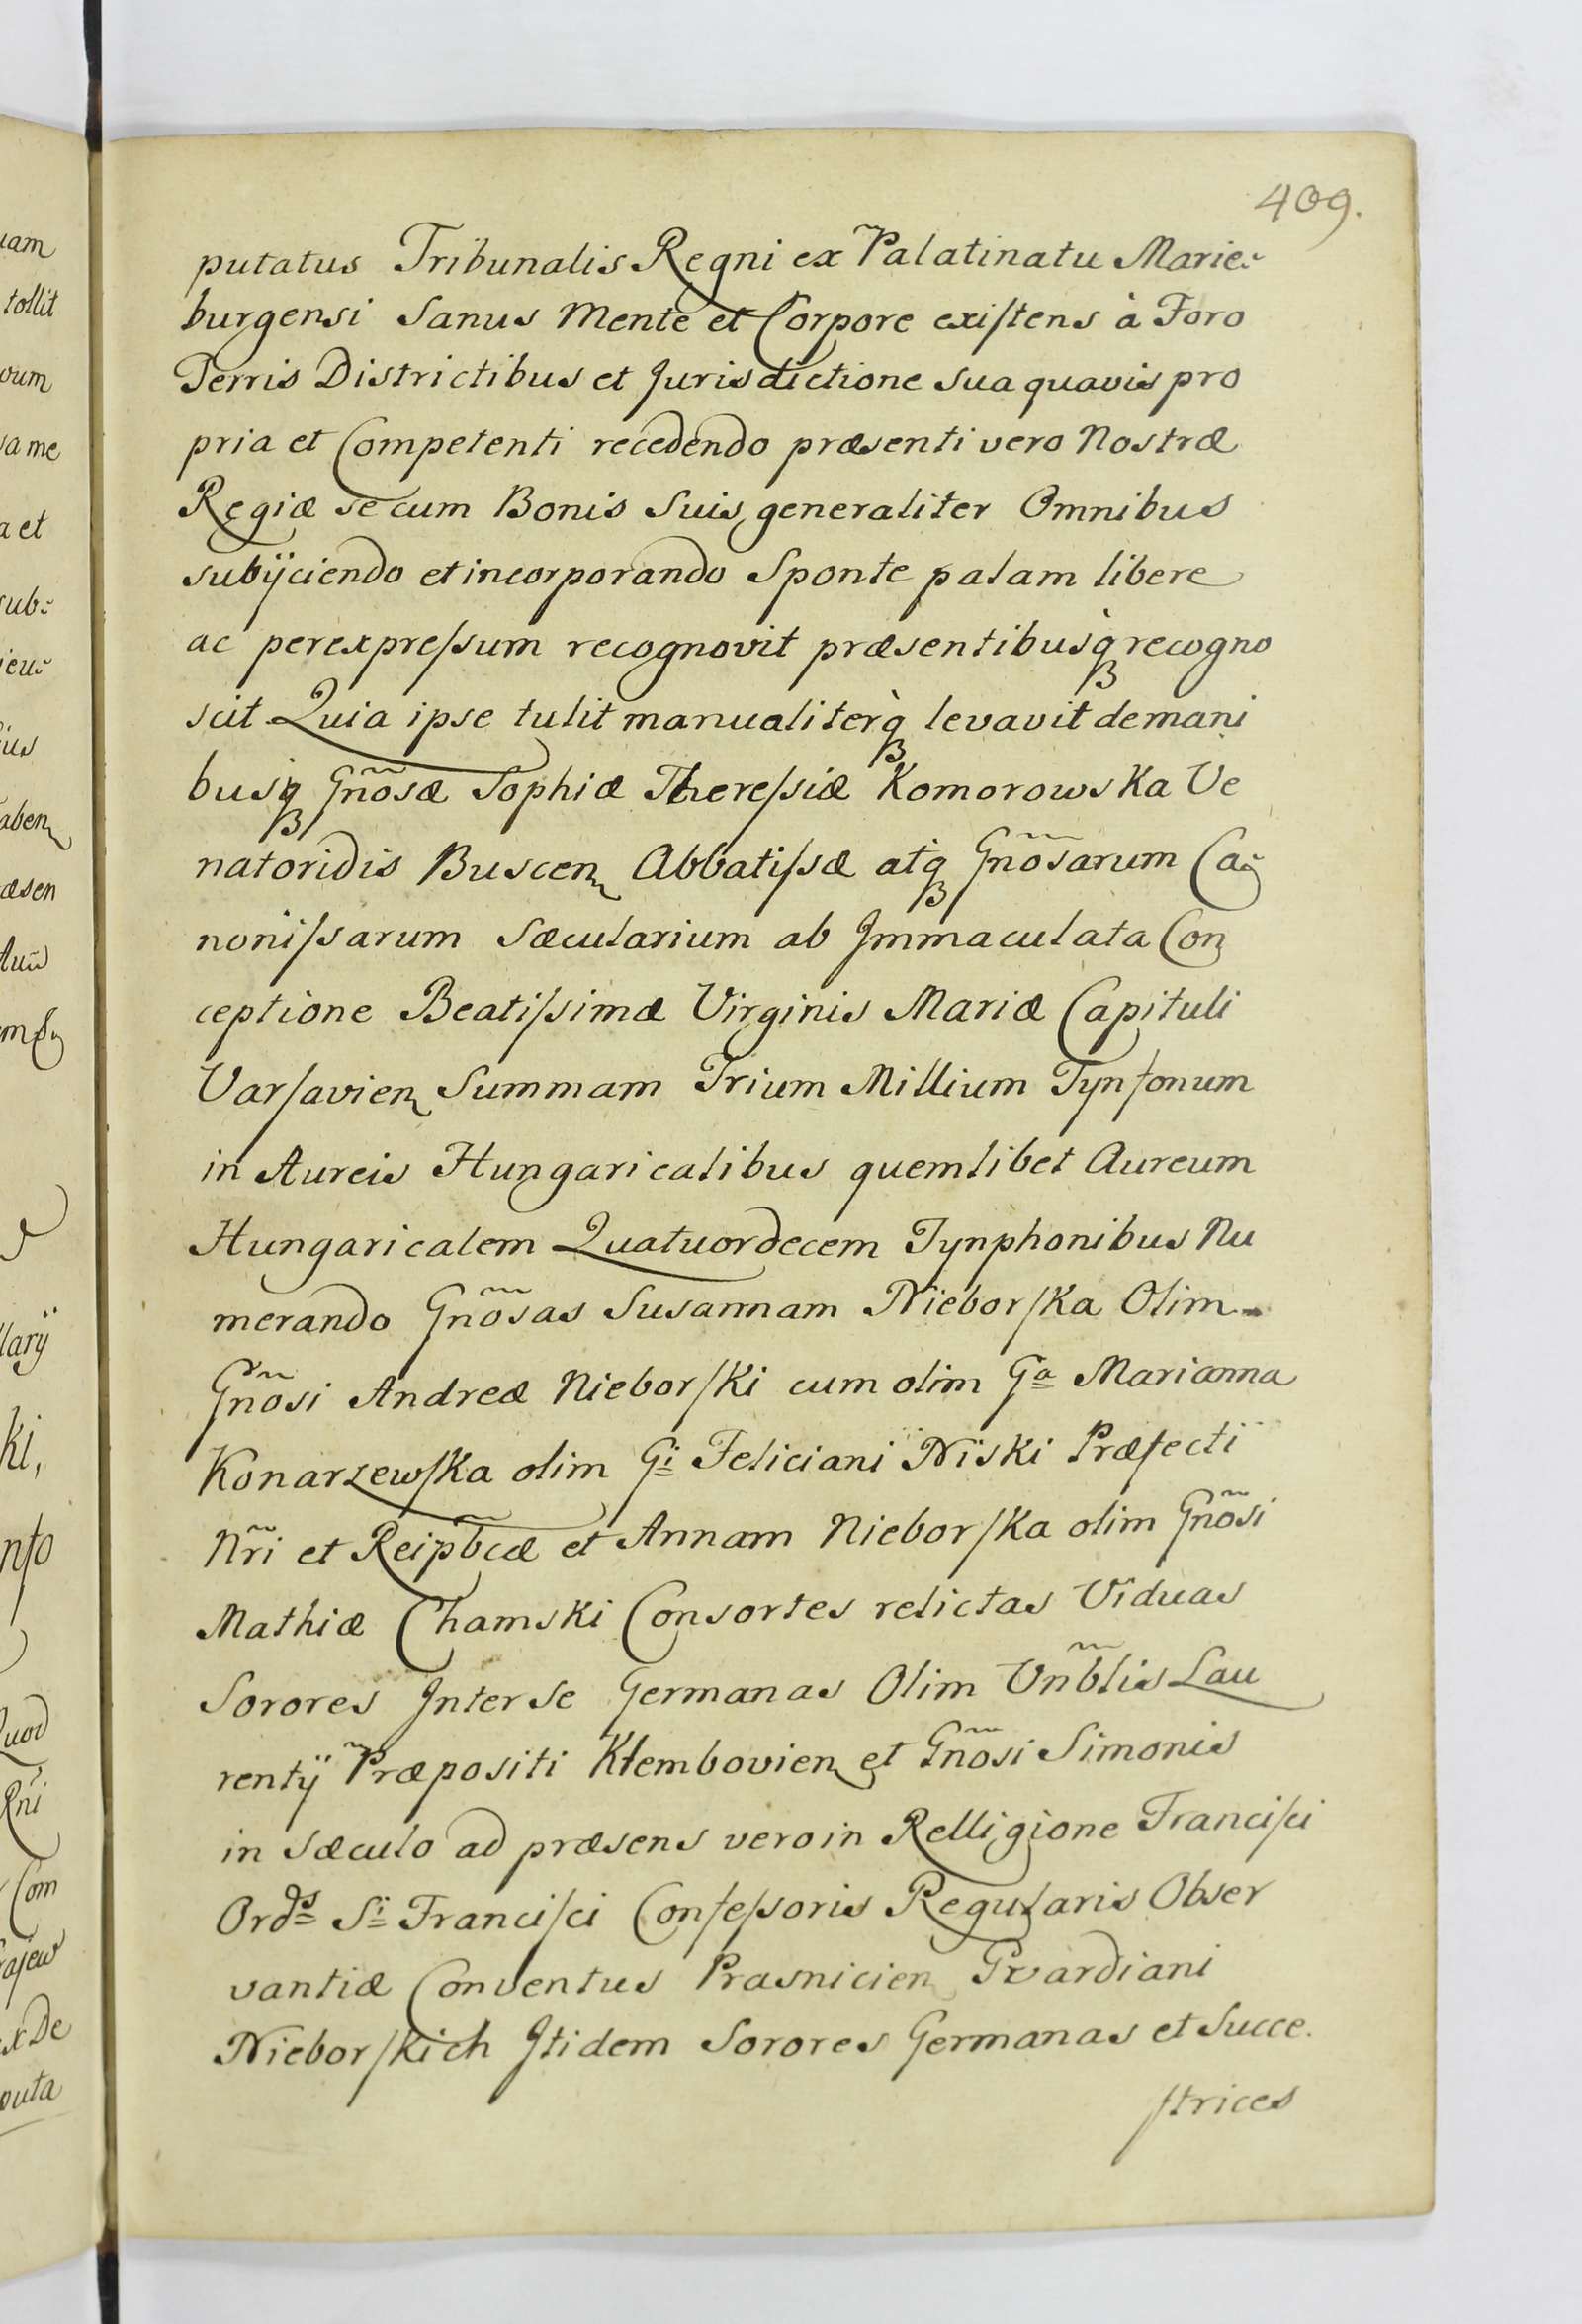 409.
putatus Tribunalis Regni ex Palatinatu Marie-
burgensi Sanus Mente et Corpore existens à Foro
Terris Districtibus et Jurisdictione sua quavis pro
pria et Competenti recedendo præsenti vero Nostræ
Regiæ se cum Bonis Suis generaliter Omnibus
subijciendo et incorporando Sponte palam libere
ac per expressum recognovit præsentibusq recogno
scit Quia ipse tulit manualiterq levavit de mani
busq Gnõsæ Sophiæ Theressiæ Komorowska Ve
natoridis Buscen Abbatissæ atq Gnõsarum Ca-
nonissarum Sæcularium ab Immaculata Con
ceptione Beatissimæ Virginis Mariæ Capituli
Varsavien Summam Trium Millium Tynfonum
in Aureis Hungaricalibus quemlibet Aureum
Hungaricalem Quatuordecem Tynphonibus Nu
merando Gnõsas Susannam Nieborska Olim
Gnõsi Andreæ Nieborski cum olim Gª Marianna
Konarzewska olim Gi Feliciani Niski Præfecti
Nr̃i et Reipb̃cæ et Annam Nieborska olim Gnõsi
Mathiæ Chamski Consortes relictas Viduas
Sorores Inter Se Germanas Olim Vñblis Lau
rentij Præpositi Klembovien et Gnõsi Simonis
in Sæculo ad præsens vero in Relligione Francisci
Ords Si Francisci Confessoris Regularis Obser
vantiæ Conventus Prasnicien Gvardiani
Nieborskich Itidem Sorores Germanas et Succe.
strices
uam
tollit
vum
a me
a et
sub-
ius
aben
æsen
larij
ki,
nfo
Quod
Rñi
Com
ex De
puta